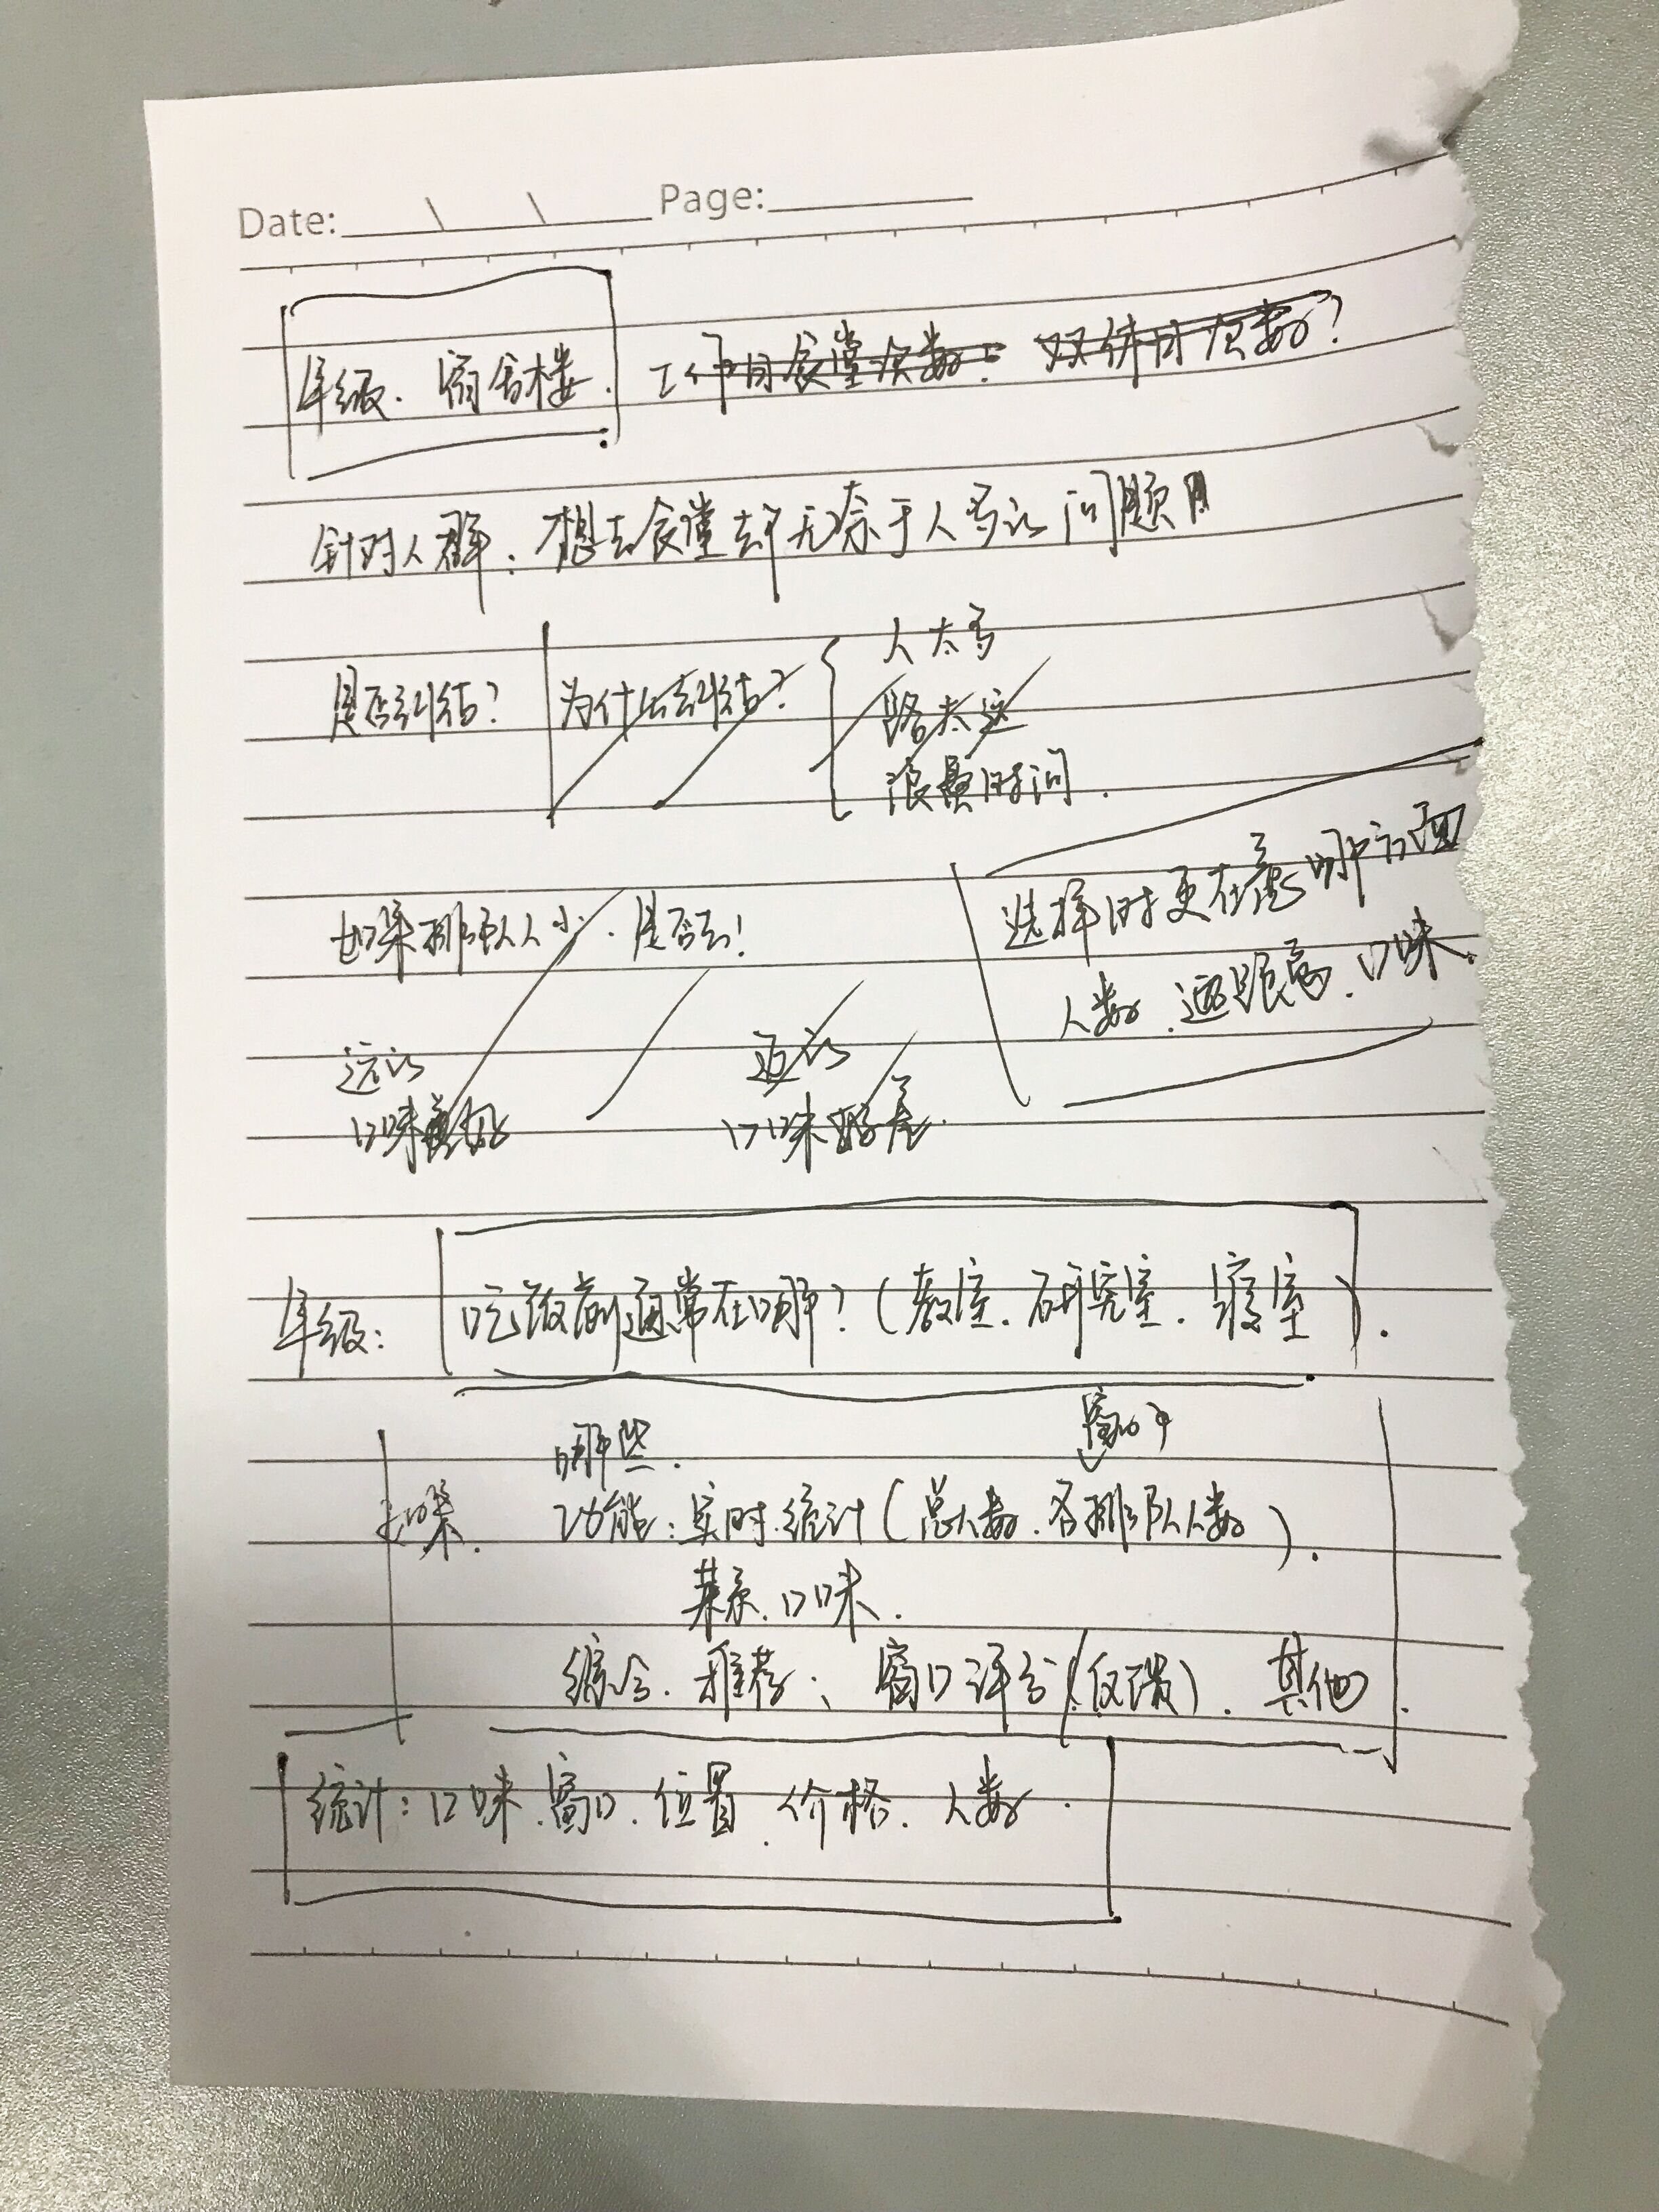 Date: \ \ Page:
年级. 宿舍楼. 工作日食堂次数: 双休日次数?
针对人群: 想去食堂却无奈于人多的问题
是否纠结? 为什么纠结? 人太多
路太远
浪费时间.
如果排队人少. 是否去!
选择时更在意哪方面
人数. 距离. 口味.
远的 近的
口味 口味 差.
年级: 吃饭前通常在哪? (教室. 研究室. 寝室).
哪些. 窗口
功能: 实时统计 (总人数. 各排队人数).
菜系. 口味.
综合. 推荐; 窗口评分 (反馈). 其他.
统计: 口味. 窗口. 位置. 价格. 人数.